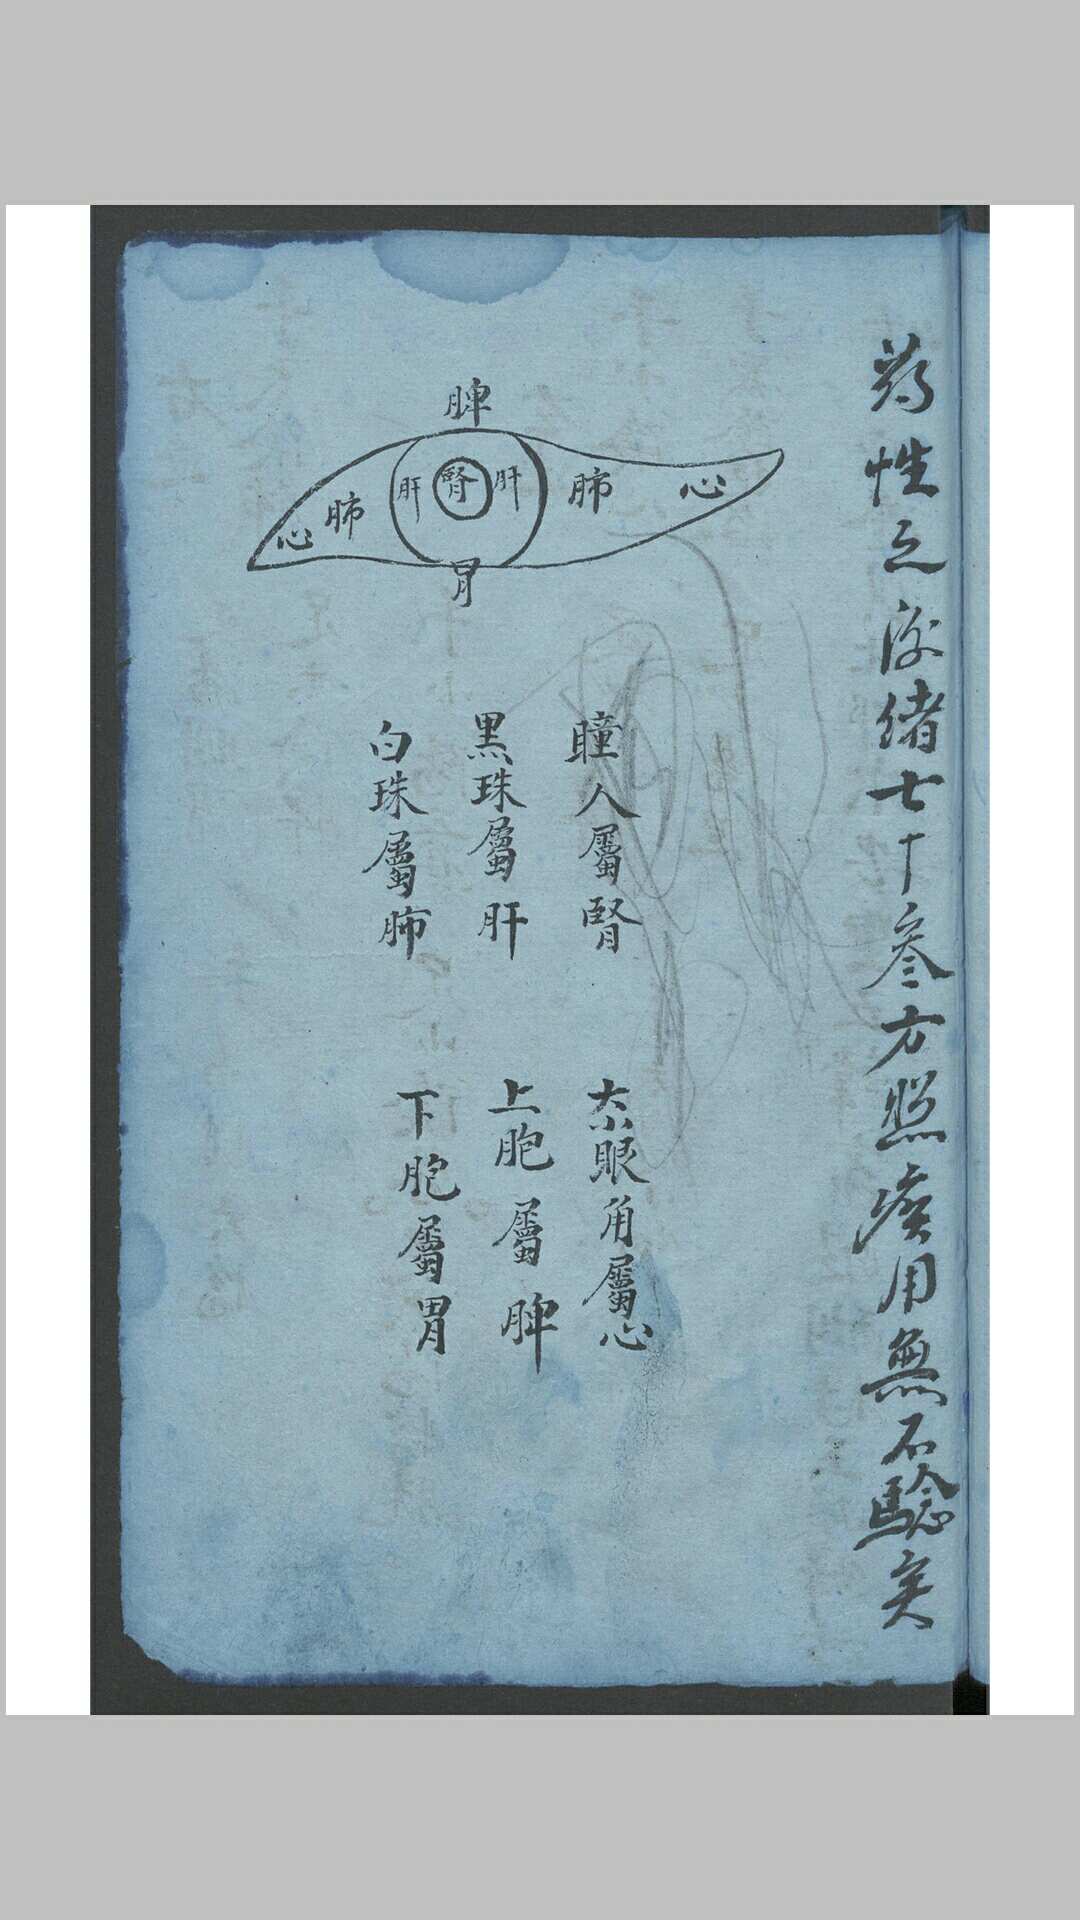 药性之緒七十叁方照用無不驗矣
脾
心 肺 肝 腎 肝 肺 心
胃
瞳人屬腎
黑珠屬肝
白珠屬肺
大小眼角屬心
上胞屬脾
下胞屬胃